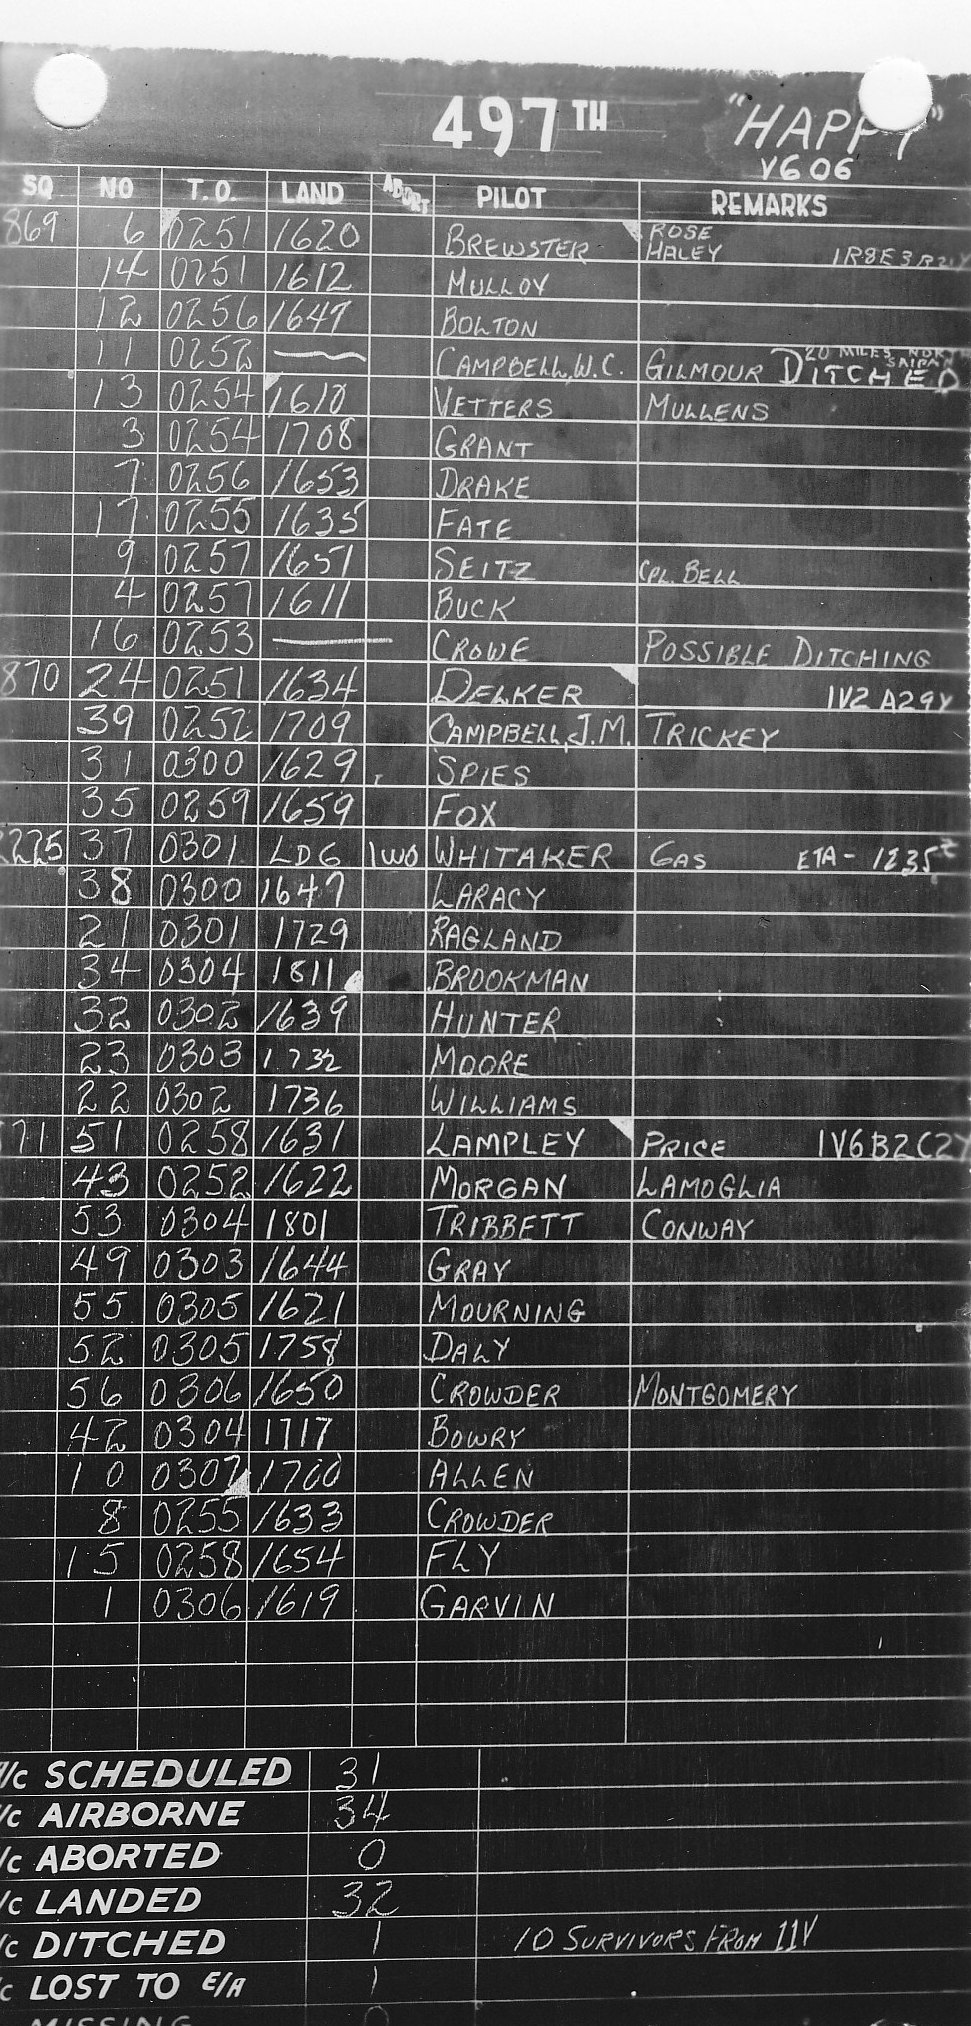 497TH "HAPPY"
V606
SQ NO T.O. LAND ABORT PILOT REMARKS
869 6 0251 1620 BREWSTER ROSE
HALEY 1R8E3R21Y
14 0251 1612 MULLOY
12 0256 1647 BOLTON
11 0252 — CAMPBELL, W.C. GILMOUR DITCHED 20 MILES SAIPAN
13 0254 1610 VETTERS MULLENS
3 0254 1708 GRANT
7 0256 1653 DRAKE
17 0255 1635 FATE
9 0257 1651 SEITZ CPL. BELL
4 0257 1611 BUCK
16 0253 — CROWE POSSIBLE DITCHING
870 24 0251 1634 DELKER 1V2 A29Y
39 0252 1709 CAMPBELL, J.M. TRICKEY
31 0300 1629 SPIES
35 0259 1659 FOX
2225 37 0301 LDG 1WO WHITAKER GAS ETA - 1235Z
38 0300 1647 LARACY
21 0301 1729 RAGLAND
34 0304 1811 BROOKMAN
32 0302 1639 HUNTER
23 0303 1732 MOORE
22 0302 1736 WILLIAMS
71 51 0258 1631 LAMPLEY PRICE 1V6B2C2Y
43 0252 1622 MORGAN LAMOGLIA
53 0304 1801 TRIBBETT CONWAY
49 0303 1644 GRAY
55 0305 1621 MOURNING
52 0305 1758 DALY
56 0306 1650 CROWDER MONTGOMERY
42 0304 1717 BOWRY
10 0307 1700 ALLEN
8 0255 1633 CROWDER
15 0258 1654 FLY
1 0306 1619 GARVIN
A/C SCHEDULED 31
/C AIRBORNE 34
/C ABORTED 0
/C LANDED 32
/C DITCHED 1 10 SURVIVORS FROM 11V
/C LOST TO E/A 1
MISSING 0